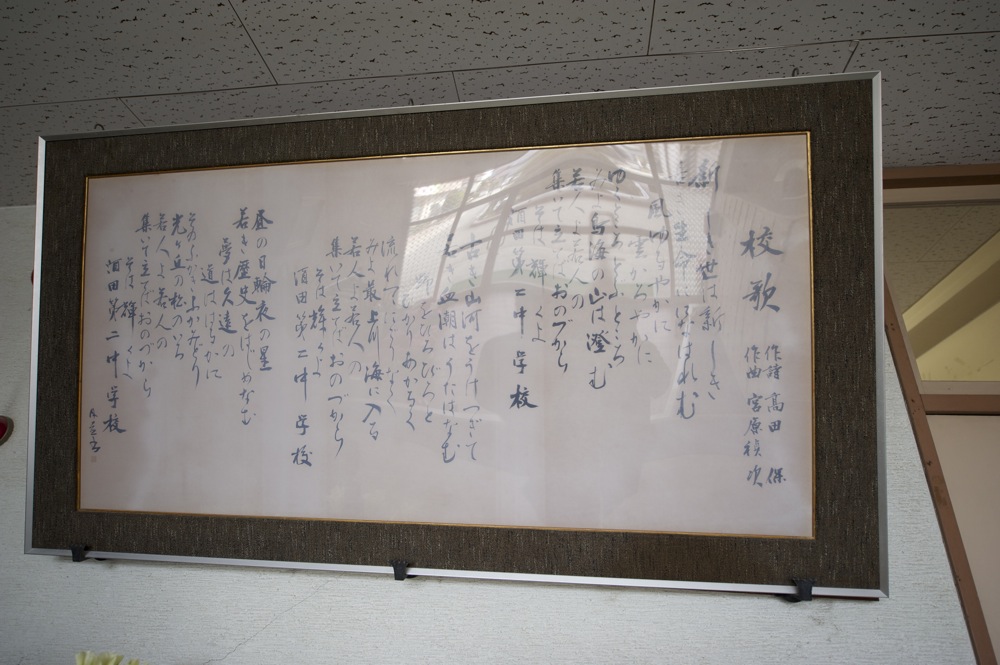 校歌
作詩 高田 保
作曲 宮原禎次
新しき世は新しき
生命
風ゆるやかに
雲かろやかに
ゆくところ
みよ鳥海の山は澄む
若人よ若人の
集いて立てばおのづから
そは輝くよ
酒田第二中学校
古き山河をうけつぎて
若き血潮はうたはなむ
野をひろびろと
流れて
みよ最上川 海に入る
若人よ若人の
集いて立てばおのづから
そは輝くよ
酒田第二中学校
昼の日輪夜の星
若き歴史をはじめなむ
夢は久遠の
道ははるかに
そのふかみどり
光ヶ丘の松のいろ
若人よ若人の
集いて立てばおのづから
そは輝くよ
酒田第二中学校